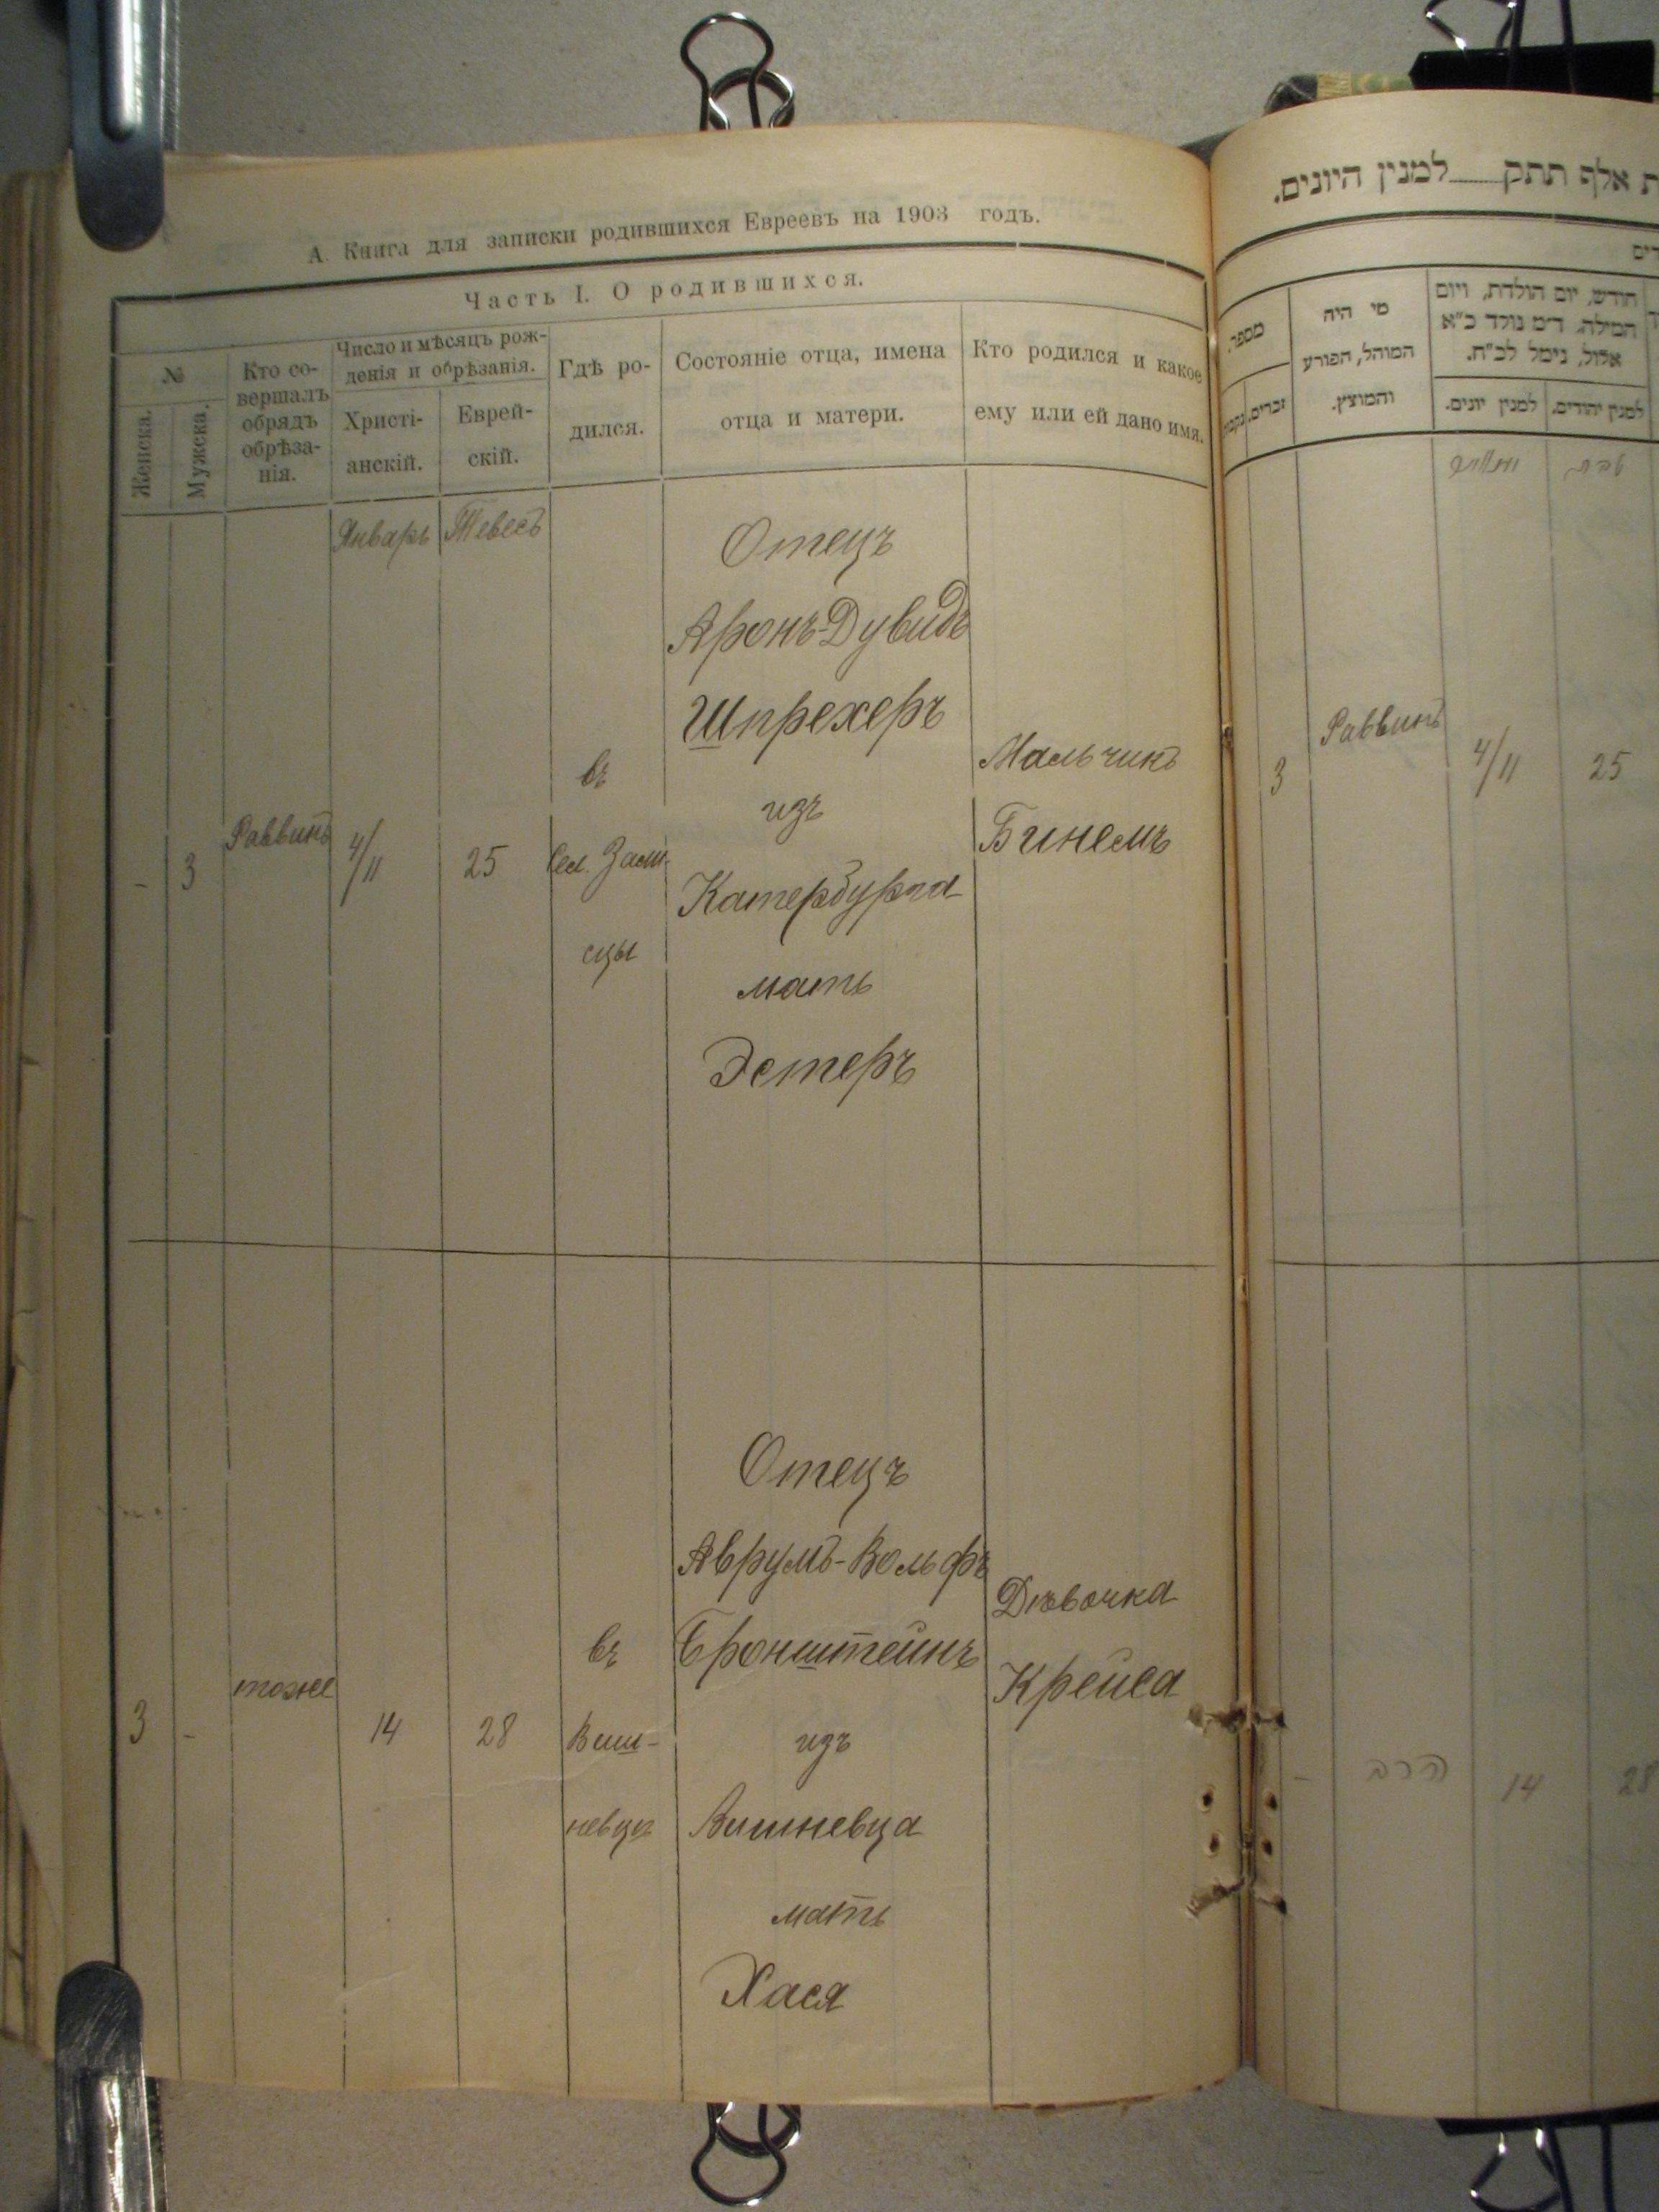 А. Книга для записки родившихся Евреевъ на 1903 годъ.
Часть I. О родившихся.
№
Женска.
Мужска.
Кто со-
вершалъ
обрядъ
обрѣза-
нія.
Число и мѣсяцъ рож-
денія и обрѣзанія.
Христі-
анскій.
Еврей-
скій.
Гдѣ ро-
дился.
Состояніе отца, имена
отца и матери.
Кто родился и какое
ему или ей дано имя.
Январь
Тевесъ
-
3
Раввинъ
4/11
25
въ
сел.
Отецъ
Аронъ-Дувидъ
Шпрехеръ
изъ
Катербурга
мать
Эстеръ
Мальчикъ
Бинемъ
3
-
тоже
14
28
въ
Виш-
невцѣ
Отецъ
Аврумъ-Вольфъ
Бронштейнъ
изъ
Вишневца
мать
Хася
Дѣвочка
Крейса
ת אלף תתק למנין היונים.
מספר.
זכרים.
מי היה
המוהל, הפורע
והמוצץ.
חודש, יום הולדת, ויום
המילה. ד״מ נולד כ״א
אלול, נימל לכ״ח.
למנין יונים.
למנין יהודים.
טבת
3
Раввинъ
4/11
25
-
הרב
14
28